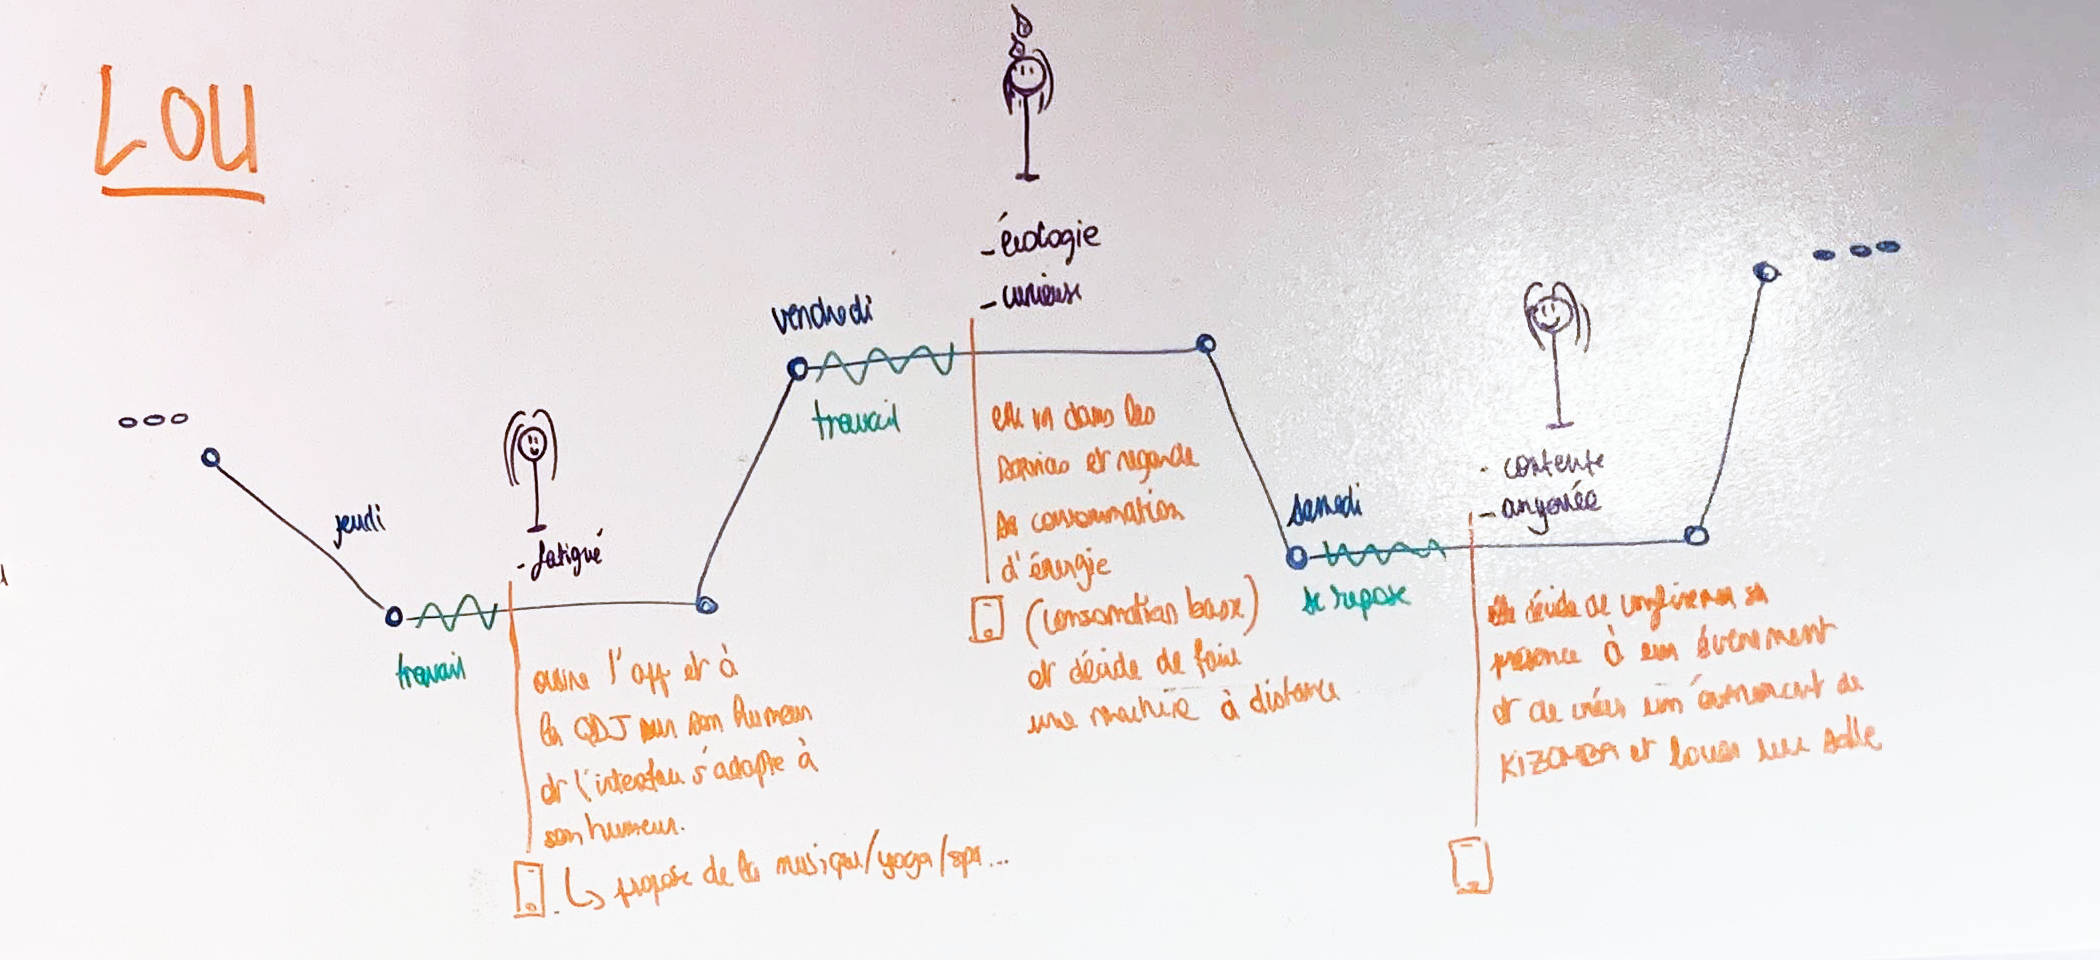 LOU
jeudi
travail
- fatigué
ouvre l'app et à
la QDJ sur son humeur
et l'interface s'adapte à
son humeur.
↳ propose de la musique/yoga/spa...
vendredi
travail
- écologie
- curieuse
elle va dans les
services et regarde
sa consommation
d'énergie
(consomation basse)
et décide de faire
une machine à distance
samedi
se repose
- contente
-
elle décide de confirmer sa
présence à un évènement
et de créer un évènement de
KIZOMBA et louer une salle